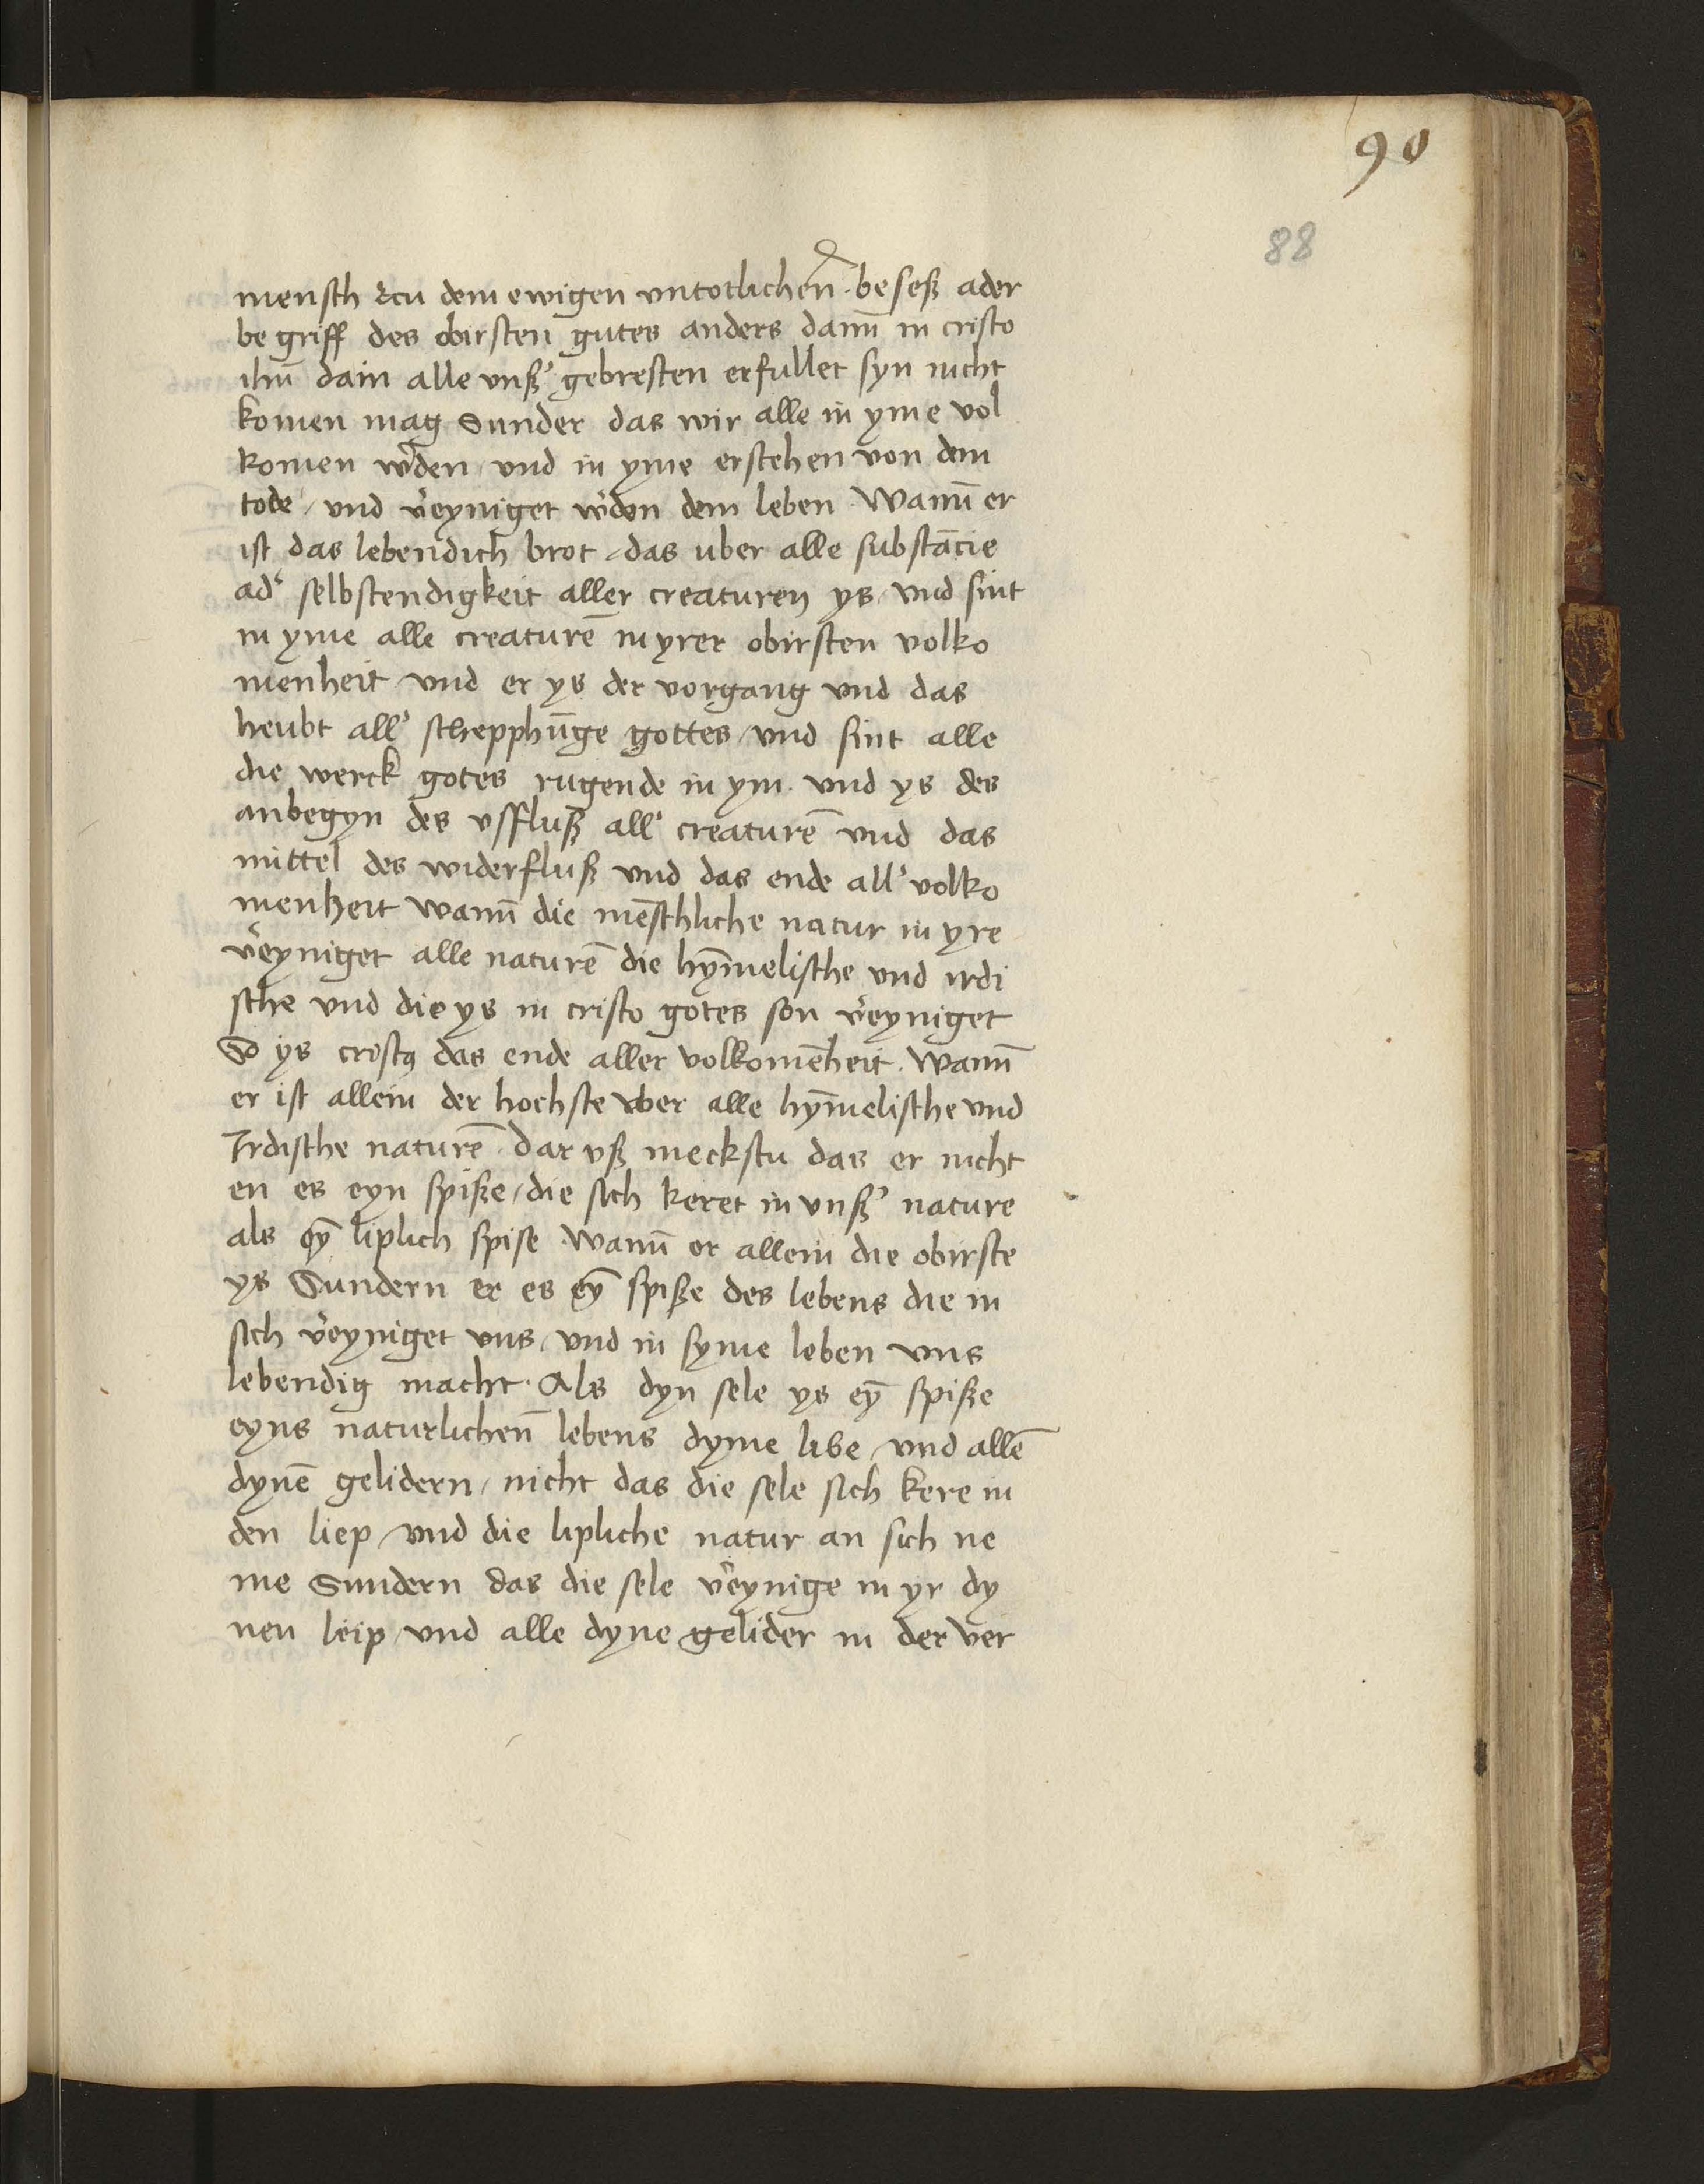 90
88
mensch zcu dem ewigen untotlichen̄ · beseß ader
be griff des obirsten gutes anders dann̄ in cristo
ihū dain alle vnß' gebresten erfullet syn nicht
komen mag Sunder das wir alle in yme vol
komen w'den / vnd in yme erstehen von dem
tode / vnd v'eyniget w'den dem leben · Wann̄ er
ist das lebendich brot / das uber alle substācie
ad' selbstendigkeit aller creaturen ys / vnd sint
in yme alle creaturē in yrer obirsten volko
menheit vnd er ys der vorgang vnd das
heubt all' schepphūge gottes / vnd sint alle
die werck gotes rugende in ym · vnd ys des
anbegyn des vsfluß all' creaturē vnd das
mittel des widerfluß vnd das ende all' volko
menheit wann̄ die mēschliche natur in yre
v'eyniget alle naturē die hȳmelische vnd irdi
sche vnd die ys in cristo gotes son v'eyniget
So ys cristꝰ das ende aller volkomēheit · Wann̄
er ist allein der hochste vber alle hȳmelische vnd
Irdische naturē · Dar vß meckstu das er nicht
en es eyn spiße / die sich keret in vnß' nature
als eȳ liplich spise · Wann̄ er allein die obirste
ys Sundern er es eȳ spiße des lebens die in
sich v'eyniget vns / vnd in syme leben vns
lebendig macht · Als dyn sele ys eȳ spiße
eyns naturlichen̄ lebens dyme libe / vnd allē
dynē gelidern / nicht das die sele sich kere in
den liep / vnd die lipliche natur an sich ne
me Sundern das die sele v'eynige in yr dy
nen leip / vnd alle dyne gelider in der ver